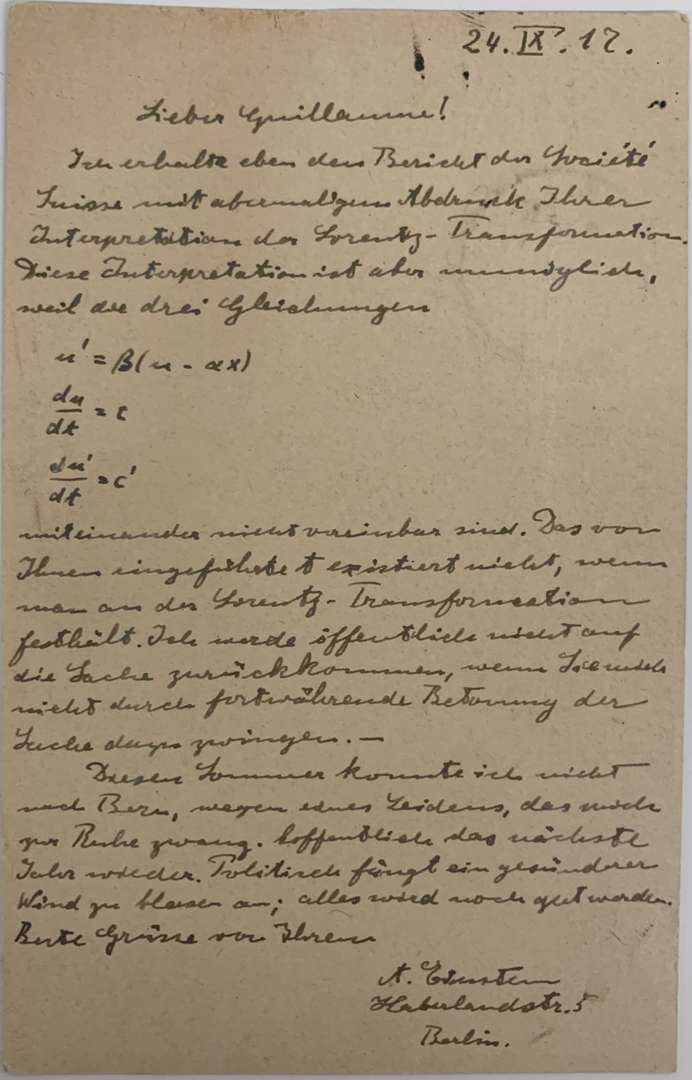 24. IX. 17.
Lieber Guillaume!
Ich erhalte eben den Bericht der Société
Suisse mit abermaligem Abdruck Ihrer
Interpretation der Lorentz-Transformation.
Diese Interpretation ist aber unmöglich,
weil die drei Gleichungen
u' = β(u - αx)
du/dt = c
du'/dt = c'
miteinander nicht vereinbar sind. Das von
Ihnen eingeführte t existiert nicht, wenn
man an der Lorentz-Transformation
festhält. Ich werde öffentlich nicht auf
die Sache zurückkommen, wenn Sie mich
nicht durch fortwährende Betonung der
Sache dazu zwingen. —
Diesen Sommer konnte ich nicht
nach Bern, wegen eines Leidens, das mich
zur Ruhe zwang. Hoffentlich das nächste
Jahr wieder. Politisch fängt ein gesünderer
Wind zu blasen an; alles wird noch gut werden.
Beste Grüsse von Ihrem
A. Einstein
Haberlandstr. 5
Berlin.